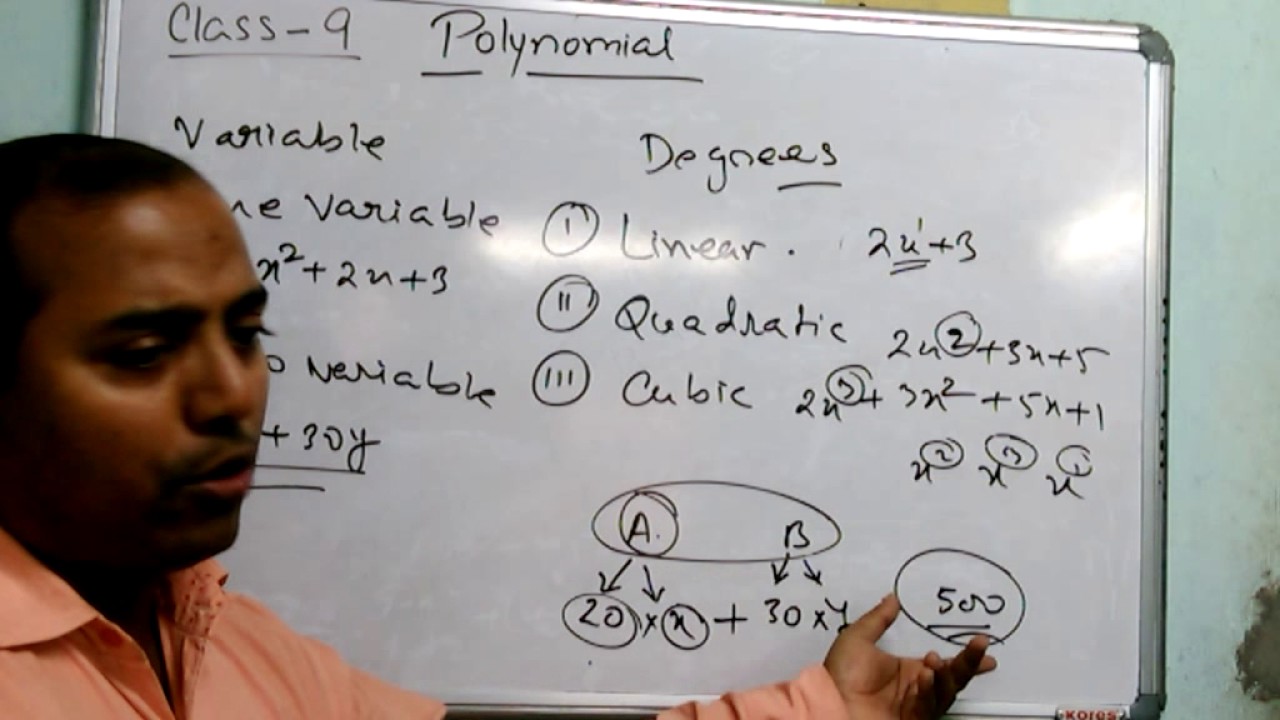 Class-9 Polynomial
Variable
Degrees
ne Variable
x²+2x+3
o variable
+30y
(I) Linear. 2x¹+3
(II) Quadratic 2x²+3x+5
(III) Cubic 2x³+3x²+5x+1
x² x³ x¹
A. B
20×x+30×y 500
kores